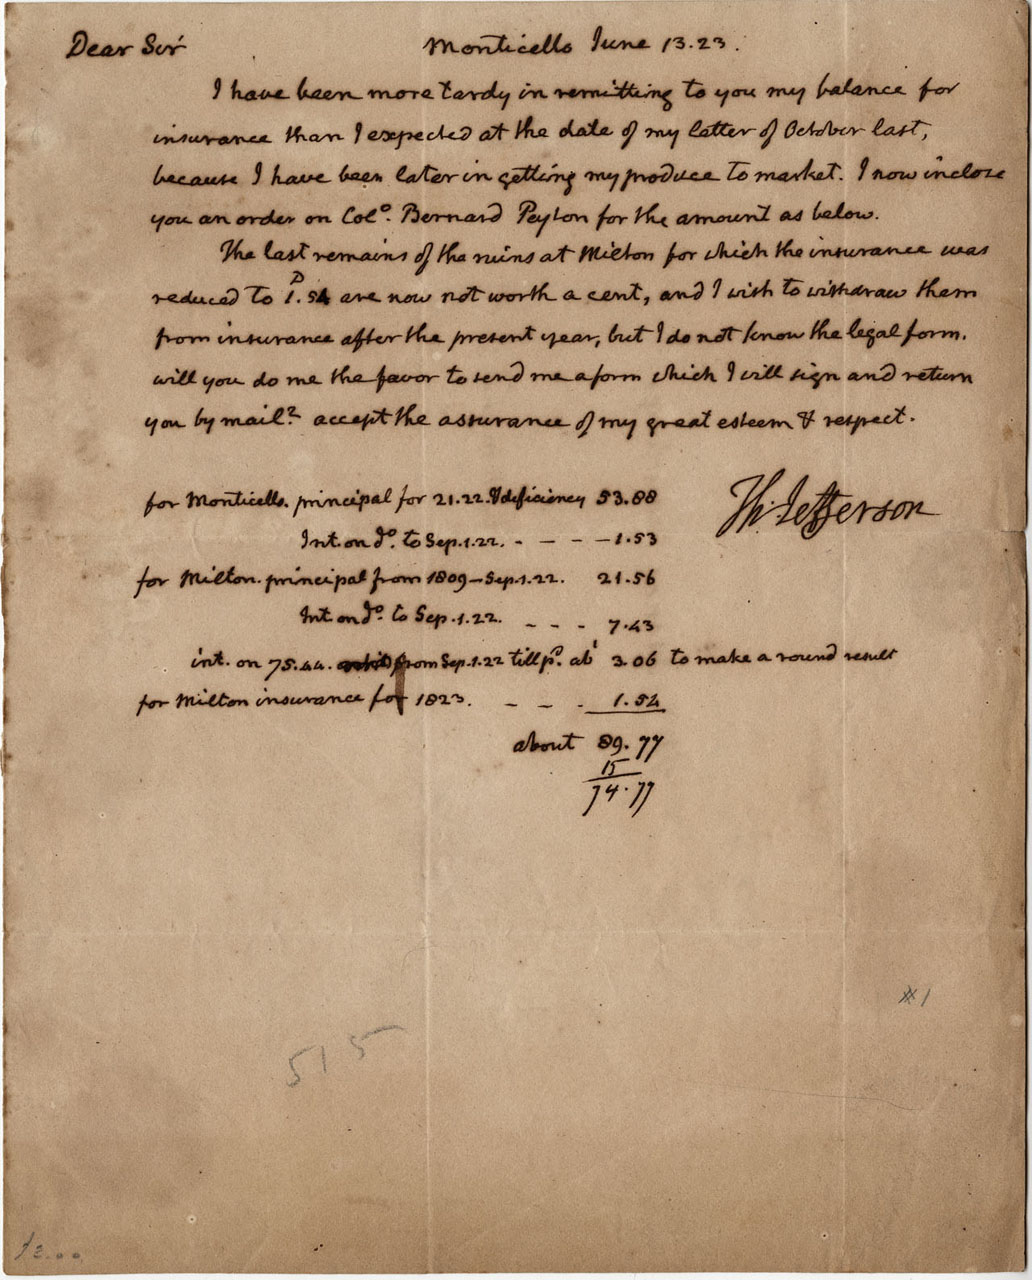 Dear Sir Monticello June 13.23.
I have been more tardy in remitting to you my balance for
insurance than I expected at the date of my letter of October last,
because I have been later in getting my produce to market. I now inclose
you an order on Colo. Bernard Peyton for the amount as below.
The last remains of the ruins at Milton for which the insurance was
reduced to 1.D 54 are now not worth a cent, and I wish to withdraw them
from insurance after the present year, but I do not know the legal form.
will you do me the favor to send me a form which I will sign and return
you by mail? accept the assurance of my great esteem & respect.
Th: Jefferson
for Monticello. principal for 21.22. & deficiency 53.88
Int. on do. to Sep.1.22. - - - - 1.53
for Milton. principal from 1809-Sep.1.22. 21.56
Int. on do. to Sep.1.22. - - - 7.43
int. on 75.44. from Sep.1.22 till pd. abt 3.06 to make a round result
for Milton insurance for 1823. - - - 1.54
about 89.77
15
74.77
#1
515